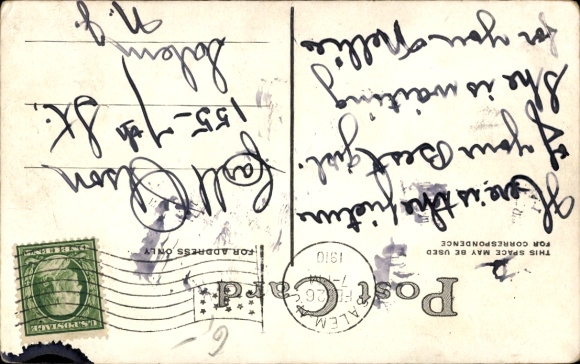 Post Card
THIS SPACE MAY BE USED
FOR CORRESPONDENCE
FOR ADDRESS ONLY
SALEM
FEB 26
7-PM
1910
U.S. POSTAGE
Here is the picture
of your Best girl.
She is waiting
for you Nellie
Carl Olson
155-7th St.
Salem
N. J.